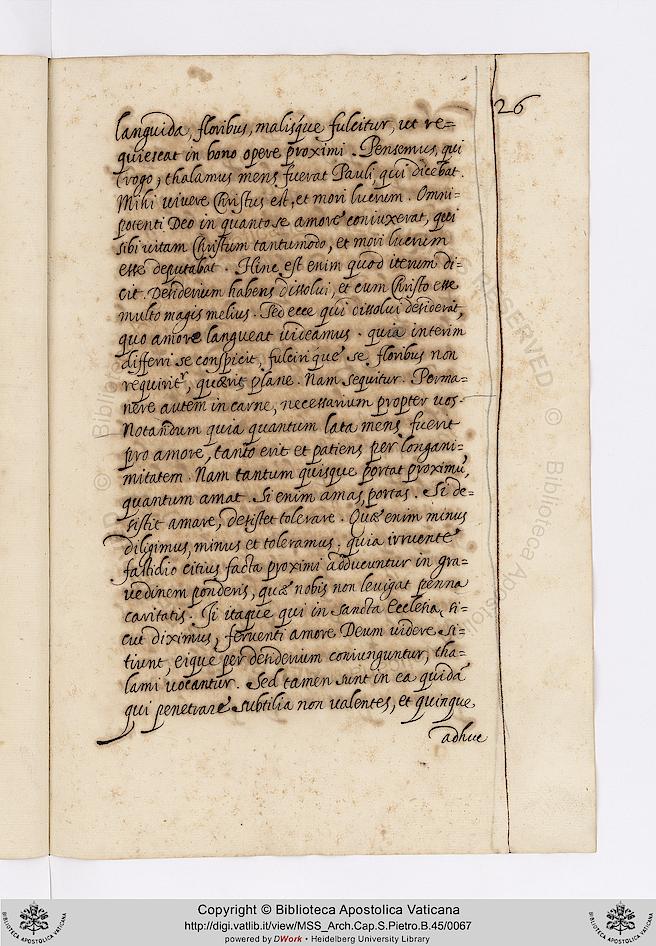 26
languida, floribus, malisque fulcitur, ut re=
quiescat in bono opere proximi. Pensemus, qui
rogo, thalamus mens fuerat Pauli, qui dicebat.
Mihi vivere Christus est, et mori lucrum. Omni=
potenti Deo in quanto se amore coniuxerat, qui
sibi vitam Christum tantumodo, et mori lucrum
esse deputabat. Hinc est enim quod iterum di=
cit. Desiderium habens dissolui, et cum Christo esse
multo magis melius. Sed ecce qui dissolui desiderat,
quo amore langueat uideamus. quia interim
differri se conspicit, fulciri que se floribus non
requirit, quaerit plane. Nam sequitur. Perma=
nere autem in carne, necessarium propter vos.
Notandum quia quantum lata mens fuerit
pro amore, tanto erit et patiens per longani=
mitatem. Nam tantum quisque portat proximū,
quantum amat. Si enim amas, portas. Si de=
sistit amare, desistet tolerare. Quae enim minus
diligimus, minus et toleramus. quia irruente
fastidio citius facta proximi adducuntur in gra=
vedinem ponderis, quae nobis non levigat penna
caritatis. Ii itaque qui in sancta Ecclesia, si=
cut diximus, ferventi amore Deum videre si=
tiunt, eique per desiderium coniunguntur, tha=
lami vocantur. Sed tamen sunt in ea quidā
qui penetrare subtilia non valentes, et quinque
adhuc
Copyright © Biblioteca Apostolica Vaticana
http://digi.vatlib.it/view/MSS_Arch.Cap.S.Pietro.B.45/0067
powered by DWork • Heidelberg University Library